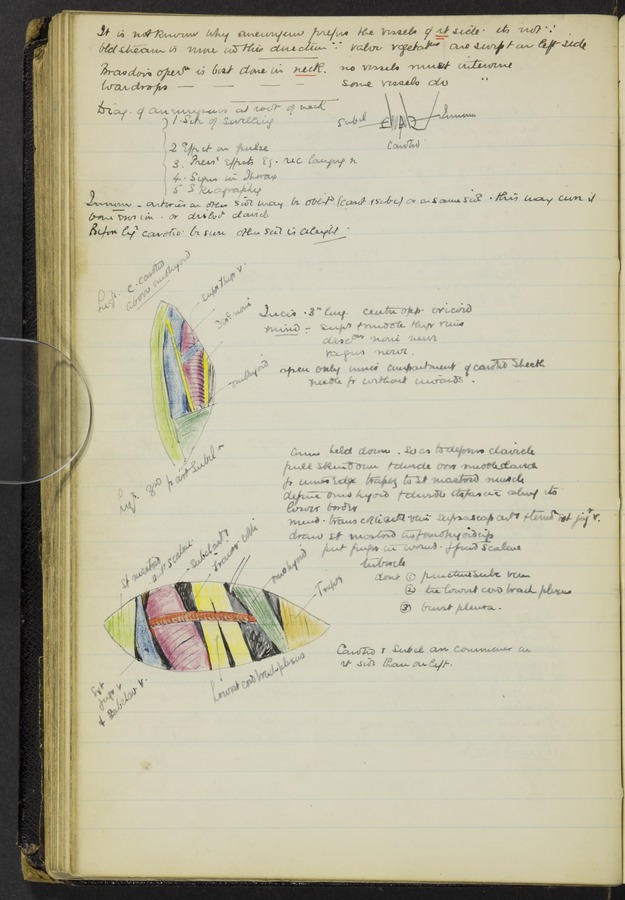 It is not known why aneurysm prefers the vessels of rt side. its not ∵
bld stream is more in this direction ∵ valve vegetatns are swept on left side
Brasdors opern is best done in neck. no vessels must intervene
Wardrops — — — — some vessels do "
Diag. of aneurysms at root of neck
1. Site of swelling
Subcl
Innom
Carotid
2 Effect on pulse
3. Press effects Eg. rec laryng n
4. Signs in Thorax
5 Skiagraphy
Innom - arteries on other side may be oblitd (carot & subcl) or on same side. this may cure it
bone erosion. or disloct clavicle
Before ligg carotid be sure other side is alright.
Ligt. C. carotid
above omohyoid
Sup thyr v.
Desc noni
omohyoid
Incis. 3" long. centre opp cricoid
mind - supr & middle thyr veins
descens noni nerve
vagus nerve.
open only inner compartment of carotid sheath
needle fr without inwards.
Ligt. 3rd part Subcl a
Arm held down. So as to depress clavicle
pull skin down & divide over middle clavicle
fr inner edge trapez to st mastoid muscle
define omohyoid & divide the fascia along its
lower border
mind. trans coll vein suprascap art & termin ext jug v.
draw st mastoid in & omohyoid up
put finger in wound. & find scalene
tubercle
dont ① puncture subc vein
② tie lowest cord brach plexus
③ burst pleura.
St mastoid
ant scalene
Subcl art
Transv colli
omohyoid
Trapez
Ext
jugr v
& Subclav v.
lowest cord brach plexus
Carotid & Subcl an commoner on
rt side than on left.